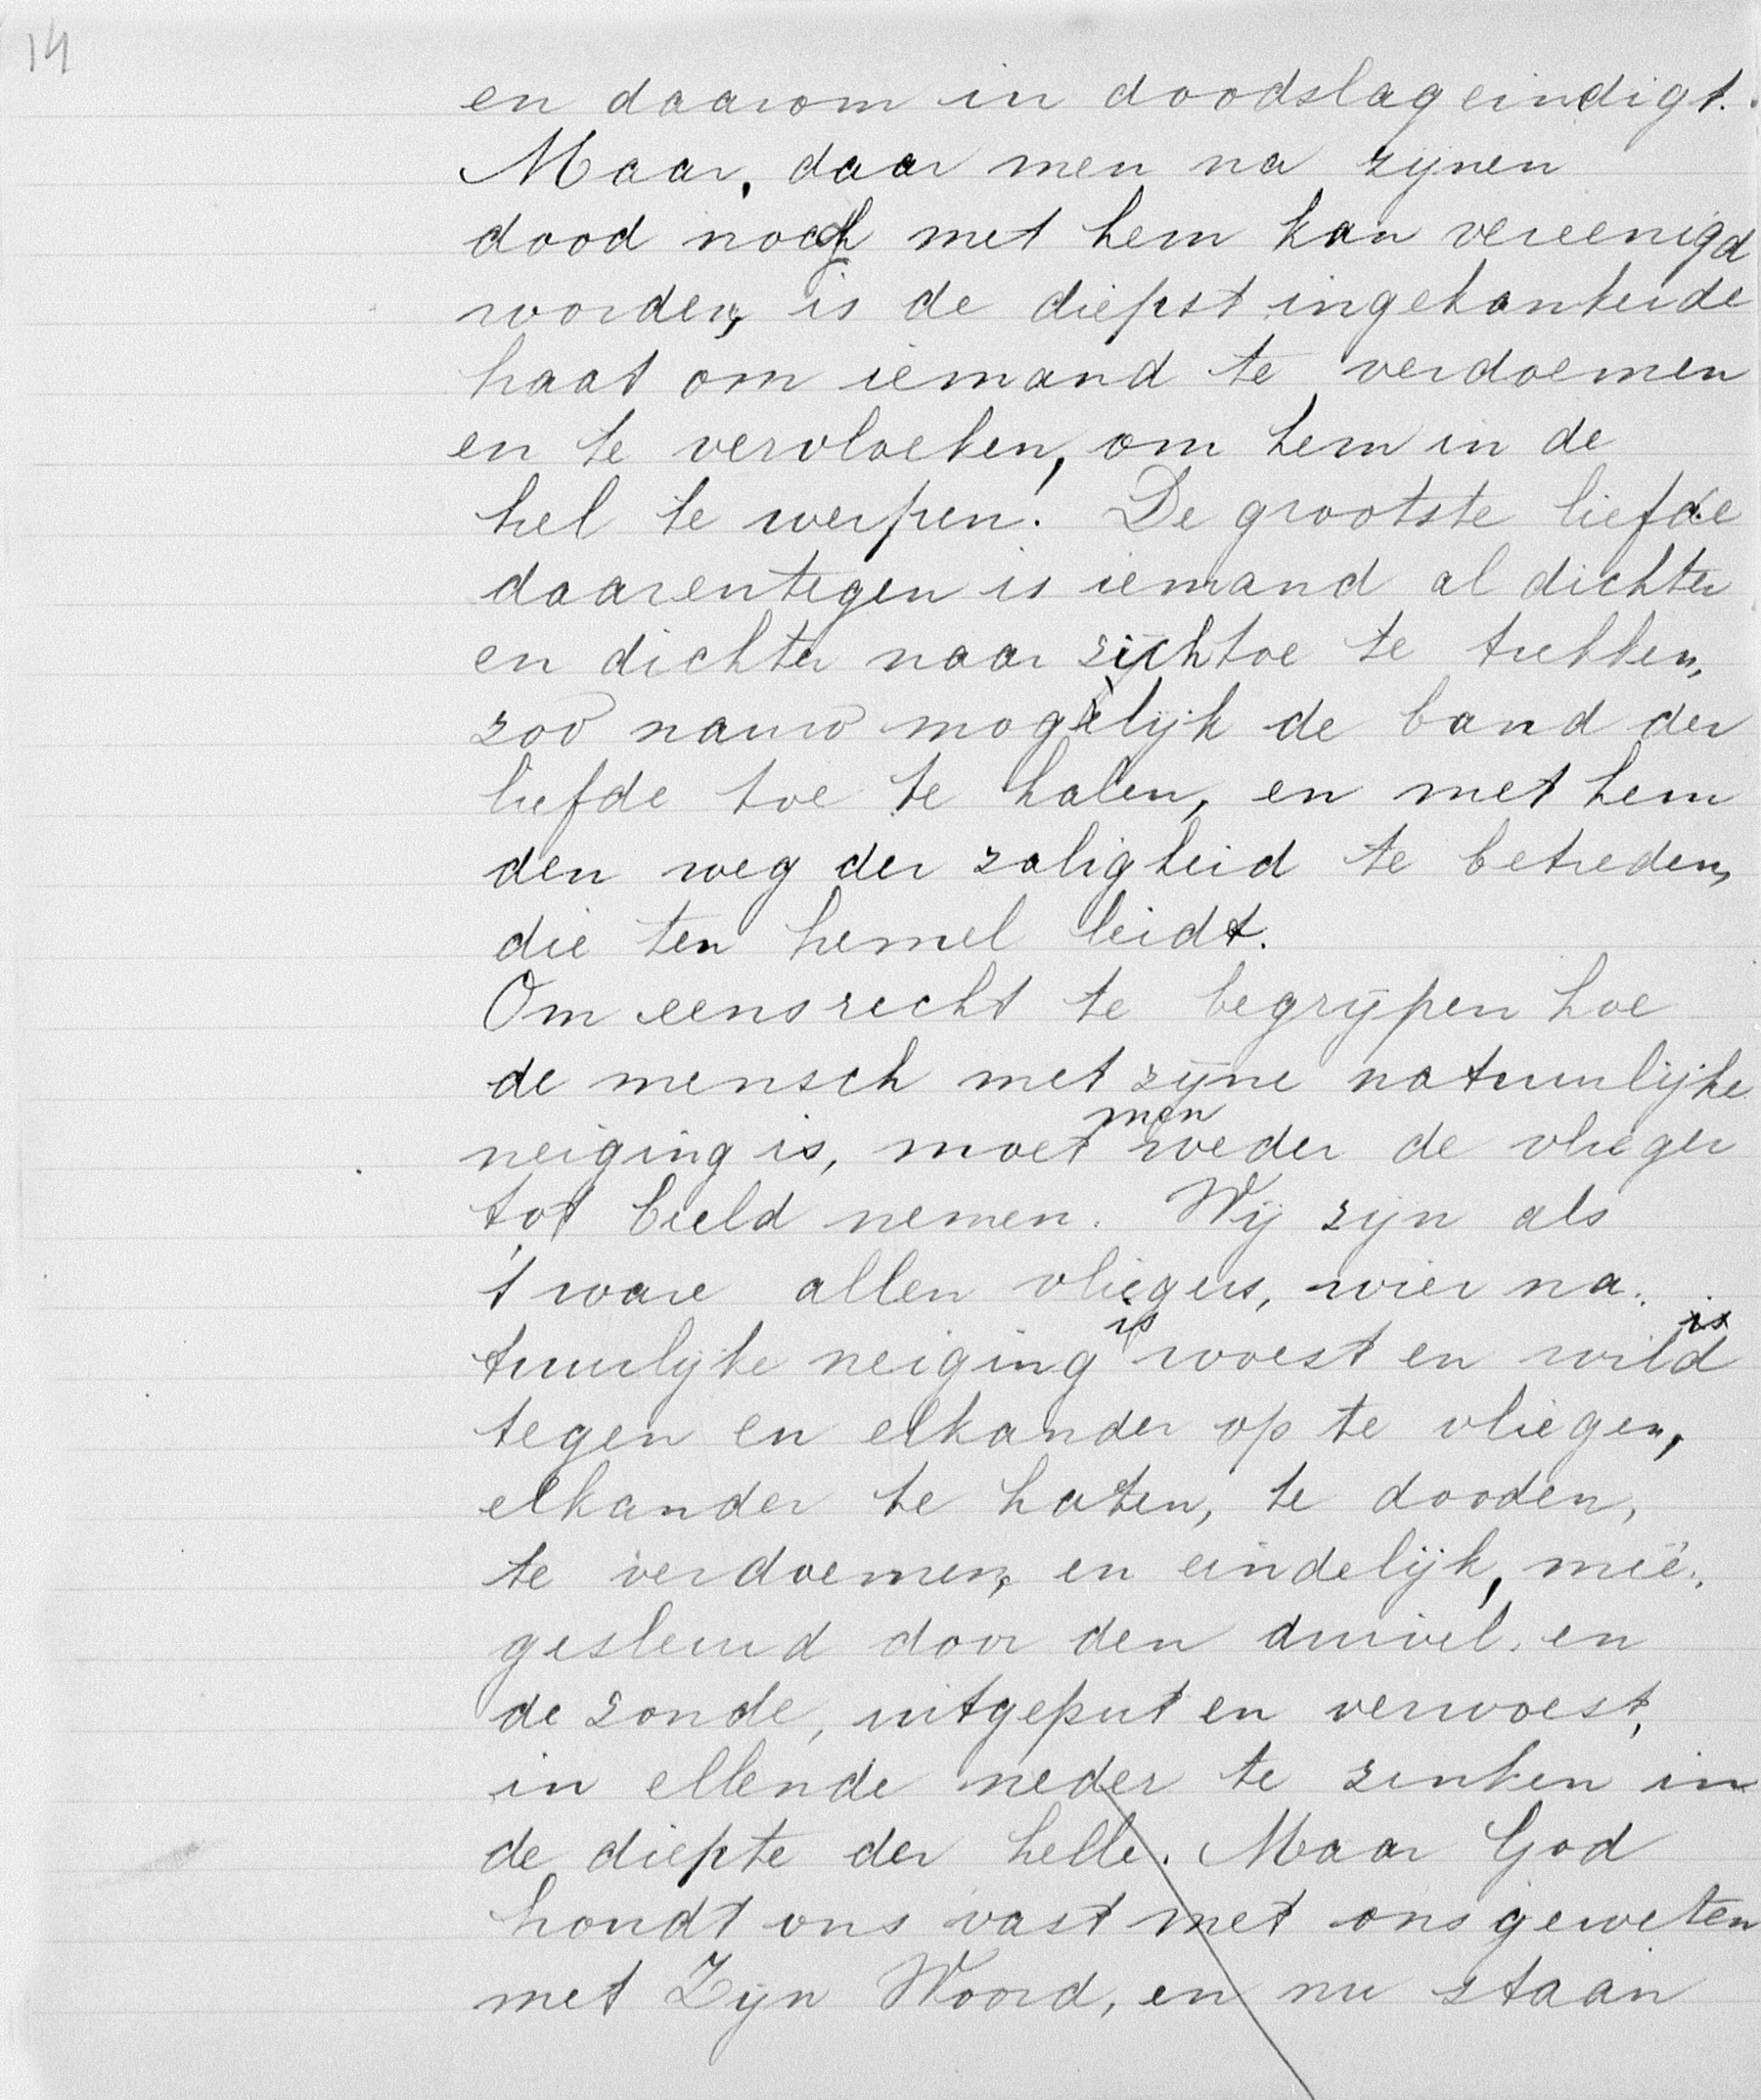 14
en daarom in doodslag eindigt.
Maar, daar men na zijnen
dood noch met hem kan vereenigd
worden, is de diepst ingekankerde
haat om iemand te verdoemen
en te vervloeken, om hem in de
hel te werpen! De grootste liefde
daarentegen is iemand al dichter
en dichter naar zich toe te trekken,
zoo nauw mogelijk de band der
liefde toe te halen, en met hem
den weg der zaligheid te betreden,
die ten hemel leidt.
Om eens recht te begrijpen hoe
de mensch met zijne natuurlijke
men
neiging is, moet weder de vlieger
tot beeld nemen. Wij zijn als
't ware allen vliegers, wier na-
is is
tuurlijke neiging woest en wild
tegen en elkander op te vliegen,
elkander te haten, te dooden,
te verdoemen, en eindelijk, meê-
gesleurd door den duivel en
de zonde, uitgeput en verwoest,
in ellende neder te zinken in
de diepte der helle. Maar God
houdt ons vast met ons geweten
met Zijn Woord, en nu staan